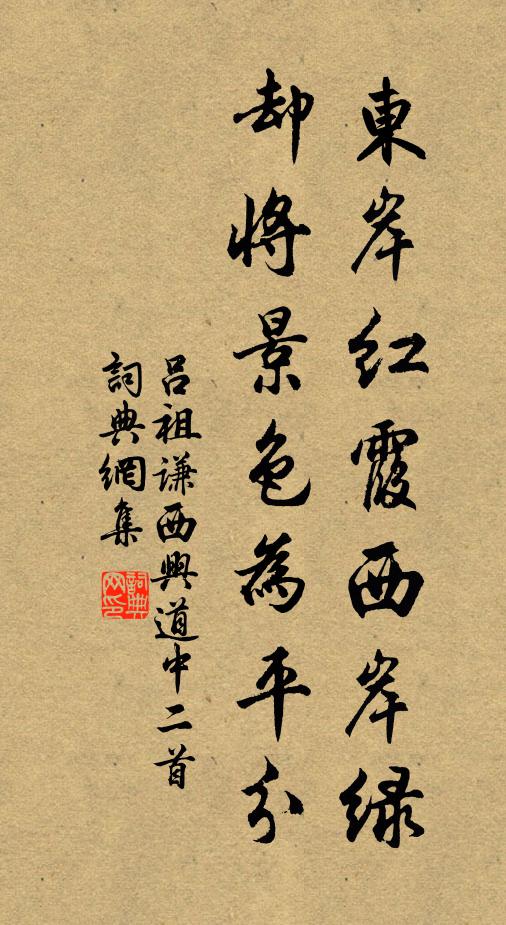 東岸红霞西岸绿
却將景色為平分
呂祖谦西興道中二首
詞典網集
詞典
网印